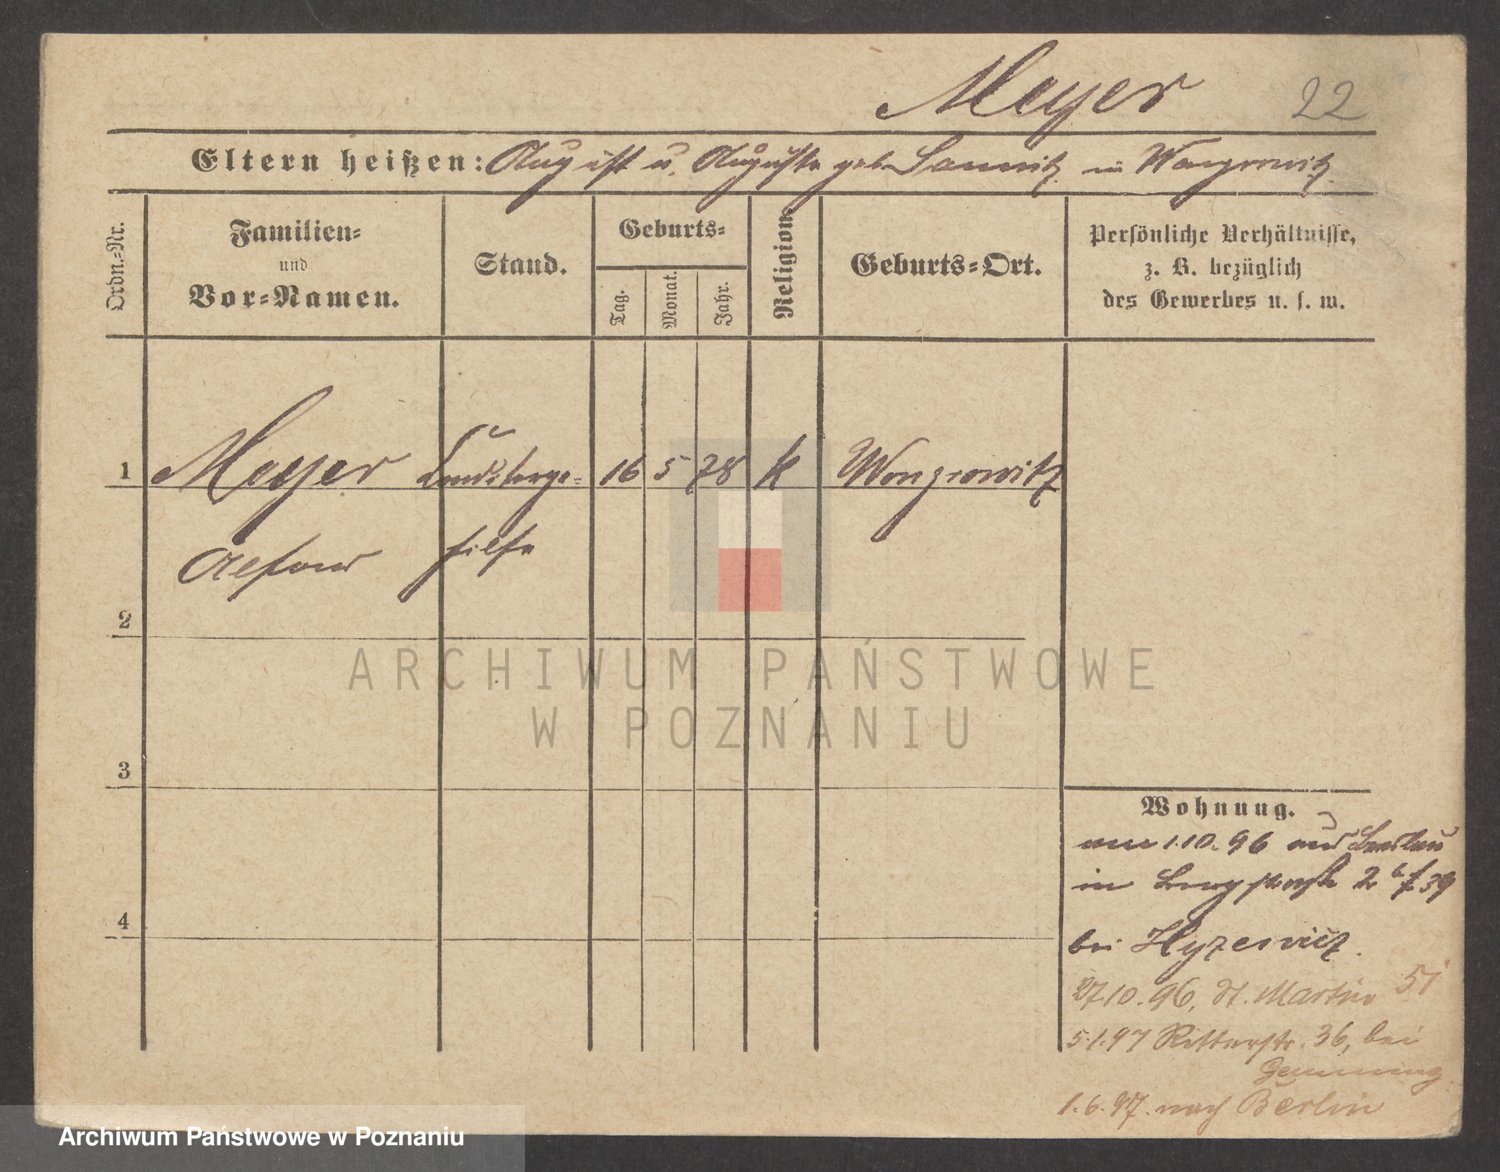 Meyer 22
Eltern heißen: August u. Auguste geb. in Wongrowitz
Ordn.-Nr.
Familien-
und
Vor-Namen.
Stand.
Geburts-
Tag.
Monat.
Jahr.
Religion.
Geburts-Ort.
Persönliche Verhältnisse,
z. B. bezüglich
des Gewerbes u. s. w.
1 Meyer 16 5 78 k Wongrowitz
2
3
4
Wohnung.
1.10.96 aus Breslau
in Bergstraße 2
bei Hyzewicz.
27.10.96, St. Martin 51
5.1.97 Ritterstr. 36, bei
1.6.97. nach Berlin
ARCHIWUM PAŃSTWOWE
W POZNANIU
Archiwum Państwowe w Poznaniu